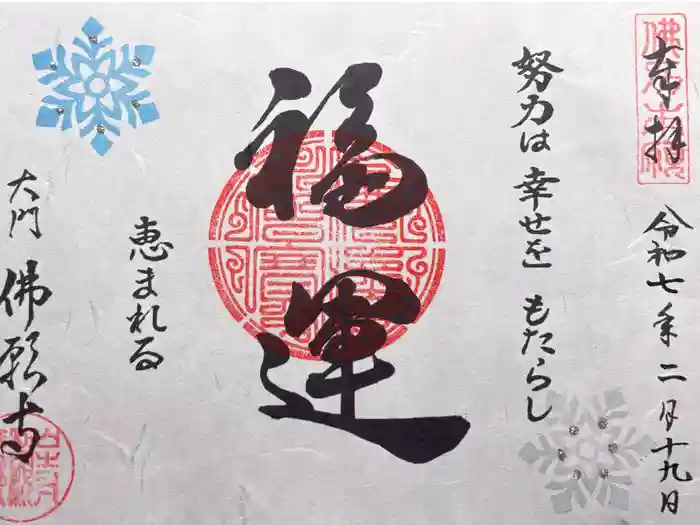 奉拝
令和七年二月十九日
努力は 幸せを もたらし
福運
恵まれる
大門
佛願寺